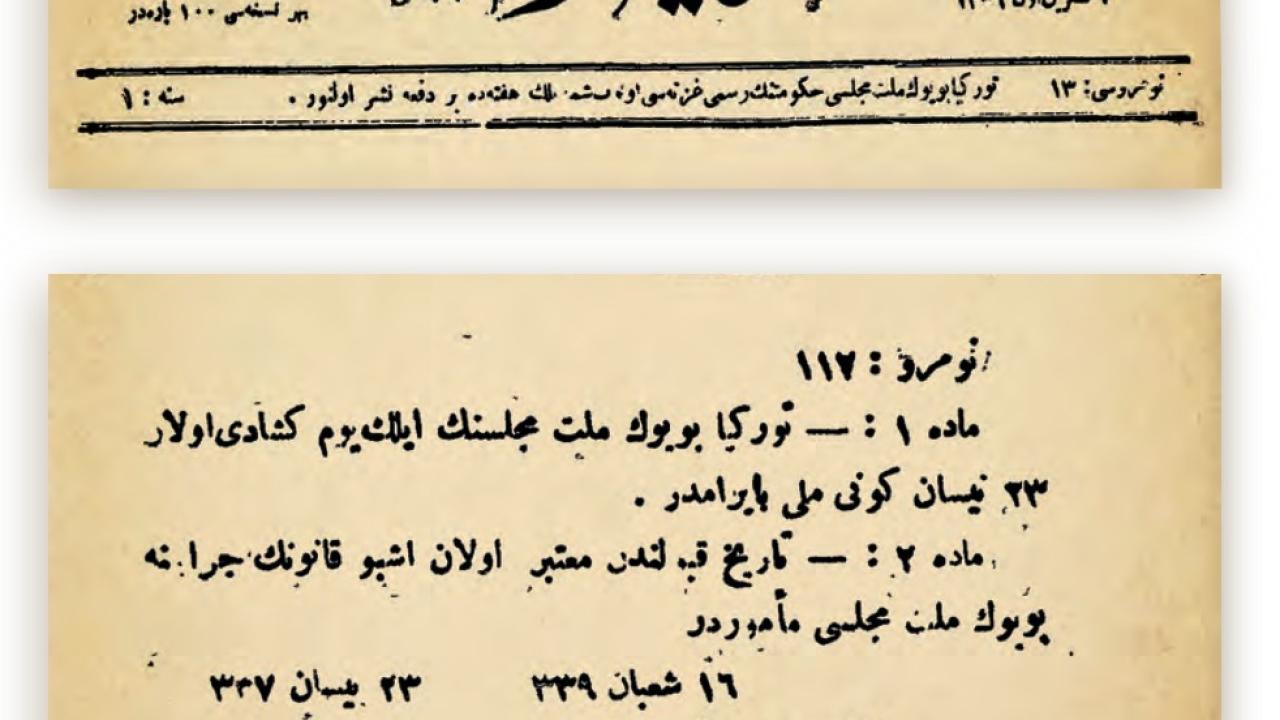 بهر نسخه‌سی ١٠٠ پاره‌در
نومروسی: ١٣ توركيا بويوك ملت مجلسی حكومتنك رسمی غزته‌سی هفته‌ده بر دفعه نشر اولنور . سنه : ١
نومرو : ١١٧
ماده ١ : — توركيا بويوك ملت مجلسنك ايلك يوم كشادی اولان
٢٣ نيسان كونی ملی بايرامدر .
ماده ٢ : — تاريخ قبولندن معتبر اولان اشبو قانونك اجراسنه
بويوك ملت مجلسی مأموردر
١٦ شعبان ٣٣٩ ٢٣ نيسان ٣٣٧